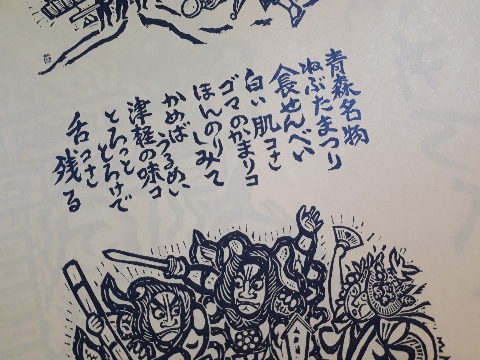 青森名物
ねぶたまつり
長せんべい
白い肌コさ
ゴマのかまりコ
ほんのりしみて
かめばうるめい
津軽の味コ
とろっととろけで
舌コさ
残る